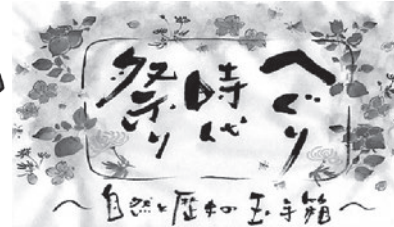 へぐり
時代
祭り
～自然と歴史の玉手箱～